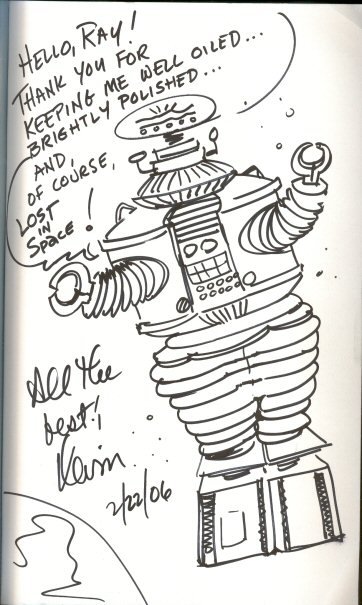 HELLO, RAY!
THANK YOU FOR
KEEPING ME WELL OILED...
BRIGHTLY POLISHED...
AND,
OF COURSE,
LOST
IN
SPACE!
All the
best!
Kevin
2/22/06